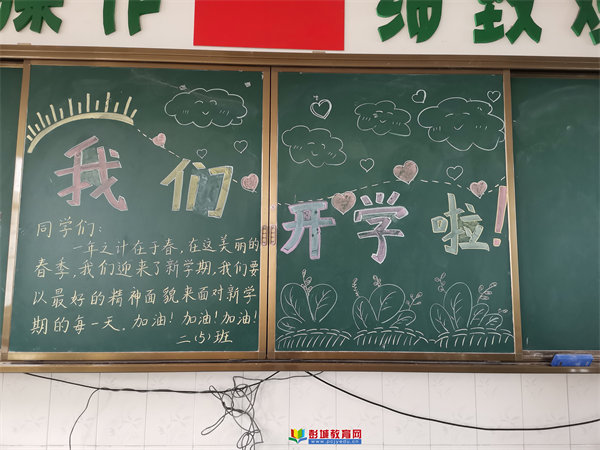 操作
细致观
我们
开学啦!
同学们:
一年之计在于春,在这美丽的
春季,我们迎来了新学期,我们要
以最好的精神面貌来面对新学
期的每一天。加油!加油!加油!
二(5)班
彭城教育网
www.pcjyedu.cn